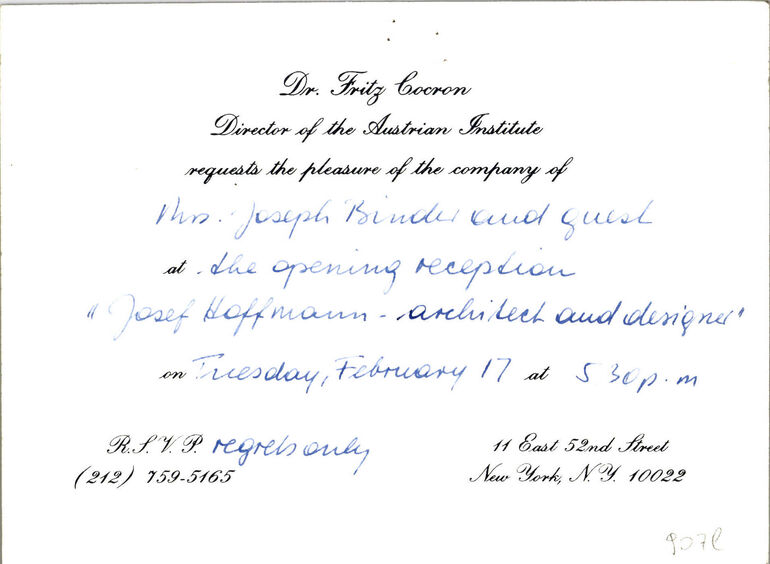 Dr. Fritz Cocron
Director of the Austrian Institute
requests the pleasure of the company of
Mrs. Joseph Binder and guest
at the opening reception
"Josef Hoffmann - architect and designer"
on Tuesday, February 17 at 5 30 p.m
R.S.V.P. regrets only
(212) 759-5165
11 East 52nd Street
New York, N.Y. 10022